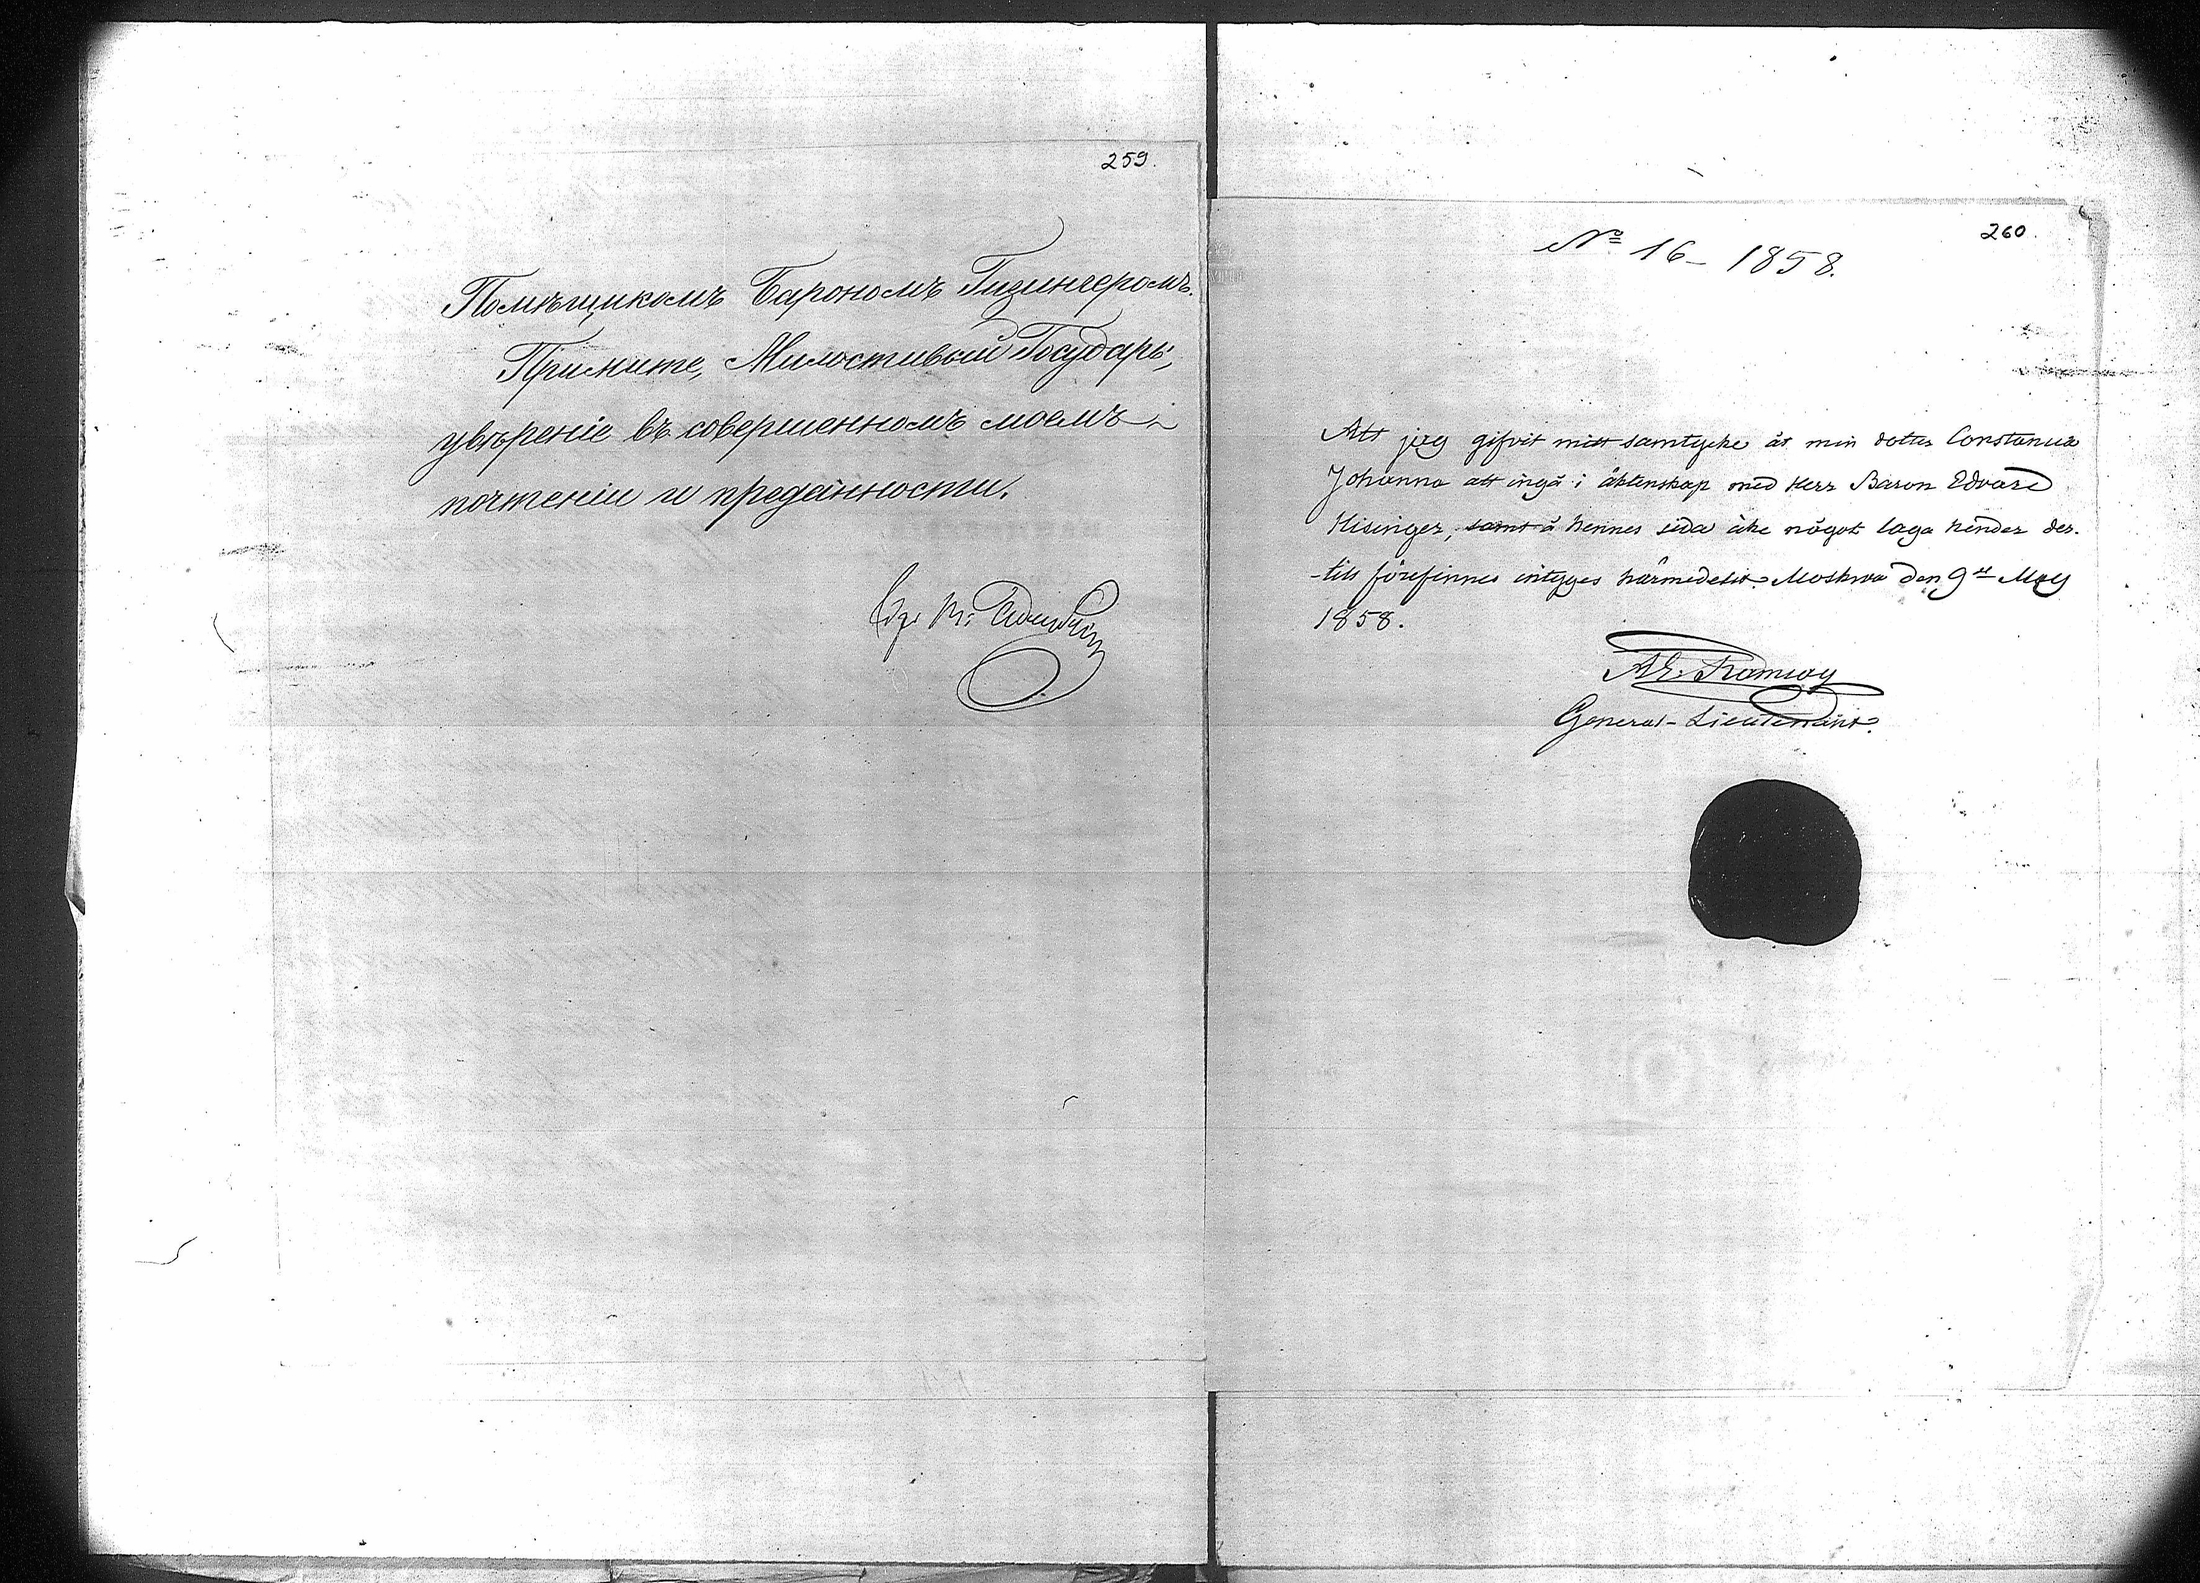 259.
Помѣщикомъ Барономъ Гизингеромъ.
Примите, Милостивый Государь,
увѣреніе въ совершенномъ моемъ
почтеніи и преданности.
260
№ 16 - 1858.
Att jag gifvit mitt samtycke åt min dotter Constance
Johanna att ingå i äktenskap med Herr Baron Edvard
Hisinger, samt å hennes sida icke något laga hinder der-
-till förefinnes intygas härmedelst. Moskwa den 9de May
1858.
Ramsay
General-Lieutenant.